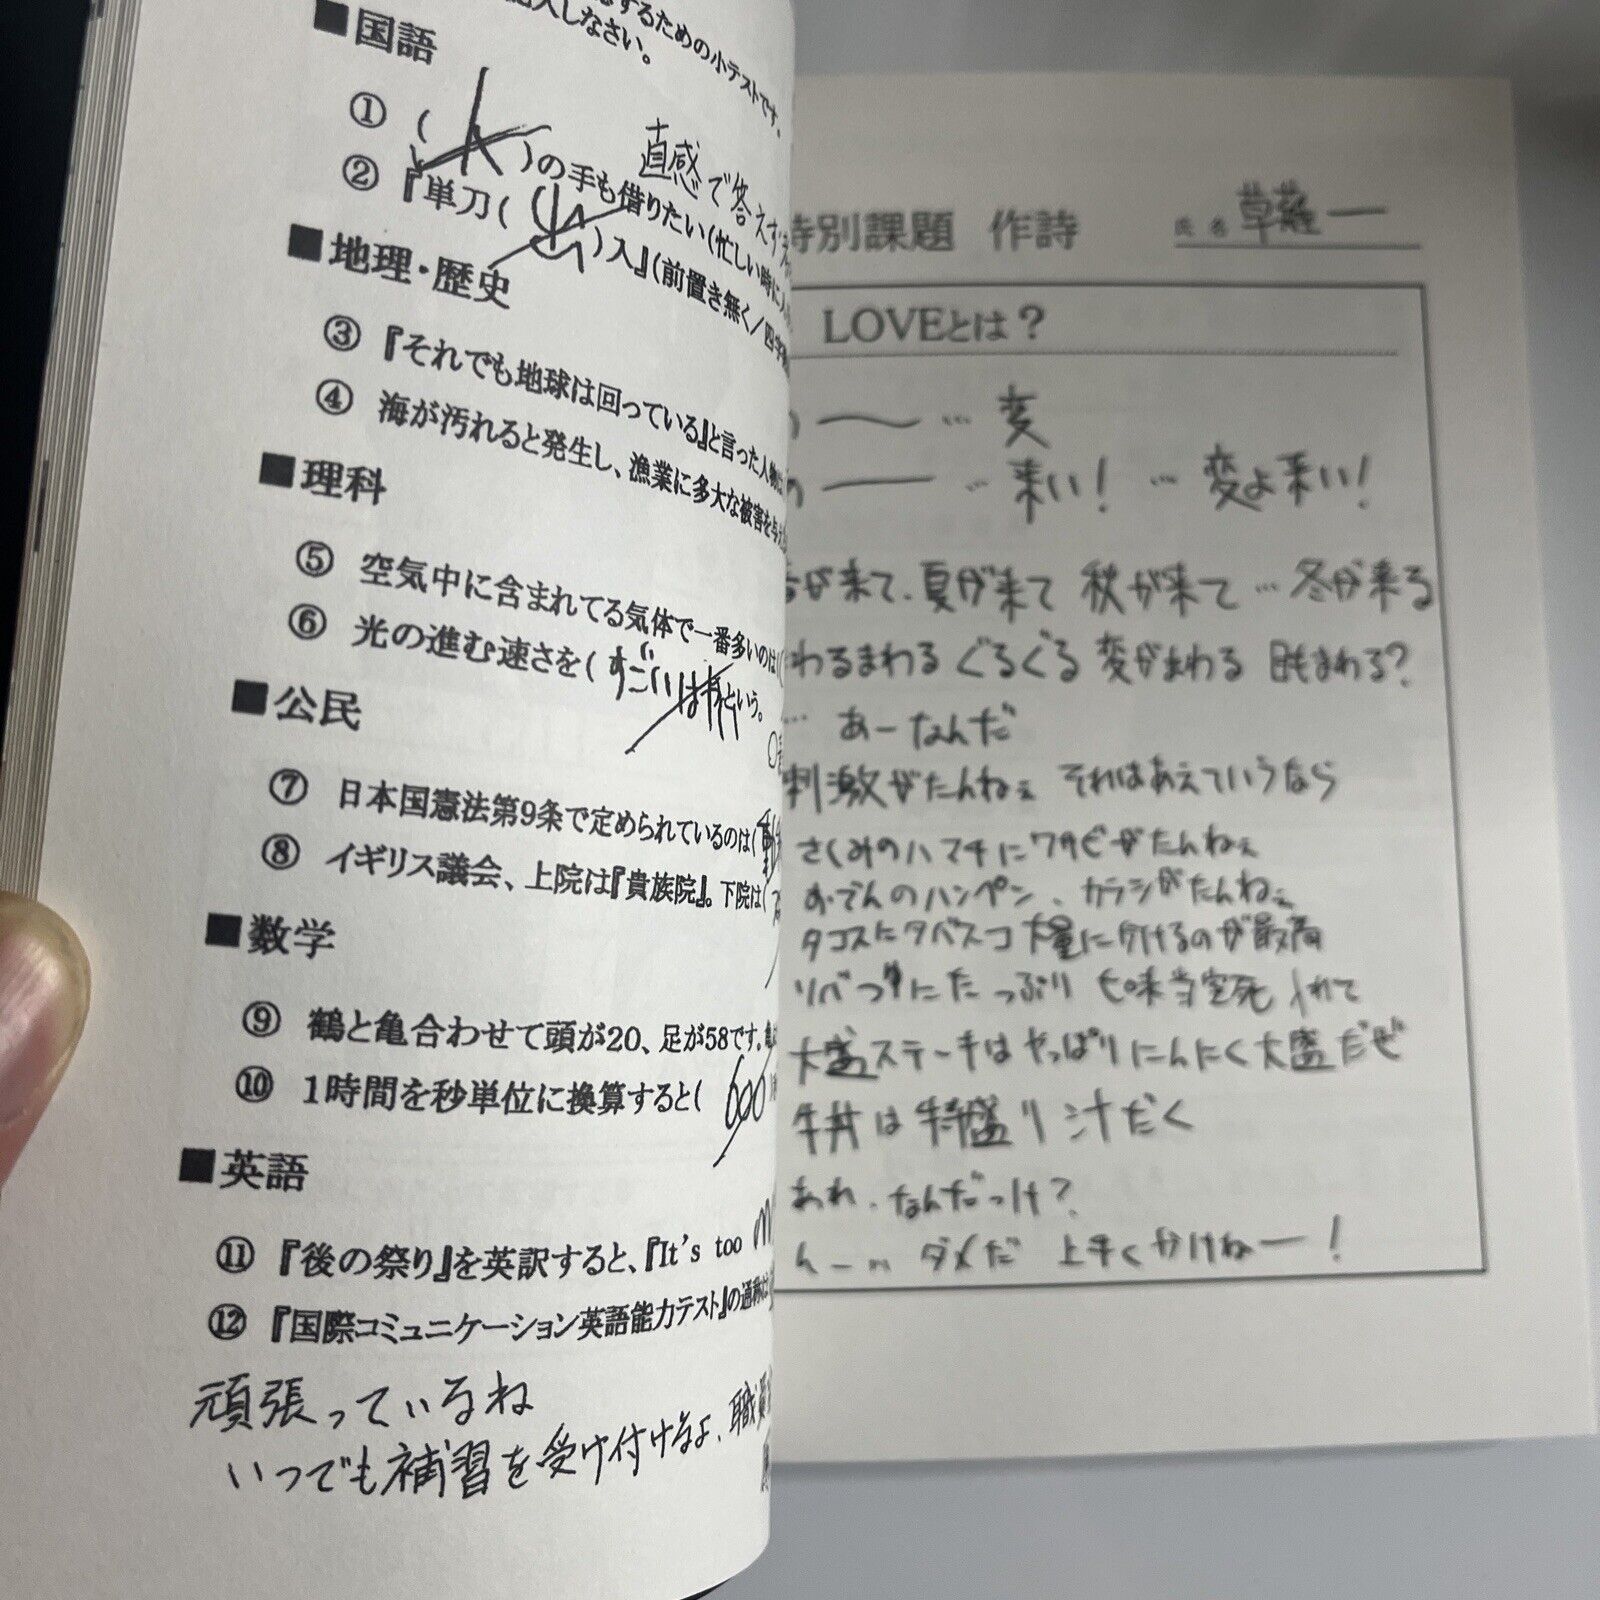 するための小テストです。
記入しなさい。
■国語
直感で答えす
①(人)の手も借りたい(忙しい時に
②『単刀( )入』(前置き無く/四字
■地理・歴史
③『それでも地球は回っている』と言った人物
④海が汚れると発生し、漁業に多大な被害を与
■理科
⑤空気中に含まれてる気体で一番多いのは(
⑥光の進む速さを(すごいはやという。
■公民
⑦日本国憲法第9条で定められているのは(
⑧イギリス議会、上院は『貴族院』。下院は(
■数学
⑨鶴と亀合わせて頭が20、足が58です。
⑩1時間を秒単位に換算すると( 600
■英語
⑪『後の祭り』を英訳すると、『It's too m
⑫『国際コミュニケーション英語能力テスト』の通称は
頑張っているね
いつでも補習を受け付けるよ、職員
特別課題 作詩 氏名 草薙一
LOVEとは?
の 〜 … 変
の ー … 来い! … 変よ来い!
春が来て、夏が来て 秋が来て … 冬が来る
まわるまわる ぐるぐる 変がまわる 目もまわる?
… あーなんだ
刺激がたんねぇ それはあえていうなら
さしみのハマチにワサビがたんねぇ
おでんのハンペン、カラシがたんねぇ
タコスにタバスコ大量にかけるのが最高
たっぷり 七味
大盛ステーキはやっぱりにんにく大盛だぜ
牛丼は特盛り汁だく
あれ、なんだっけ?
んー… ダメだ 上手くかけねー!